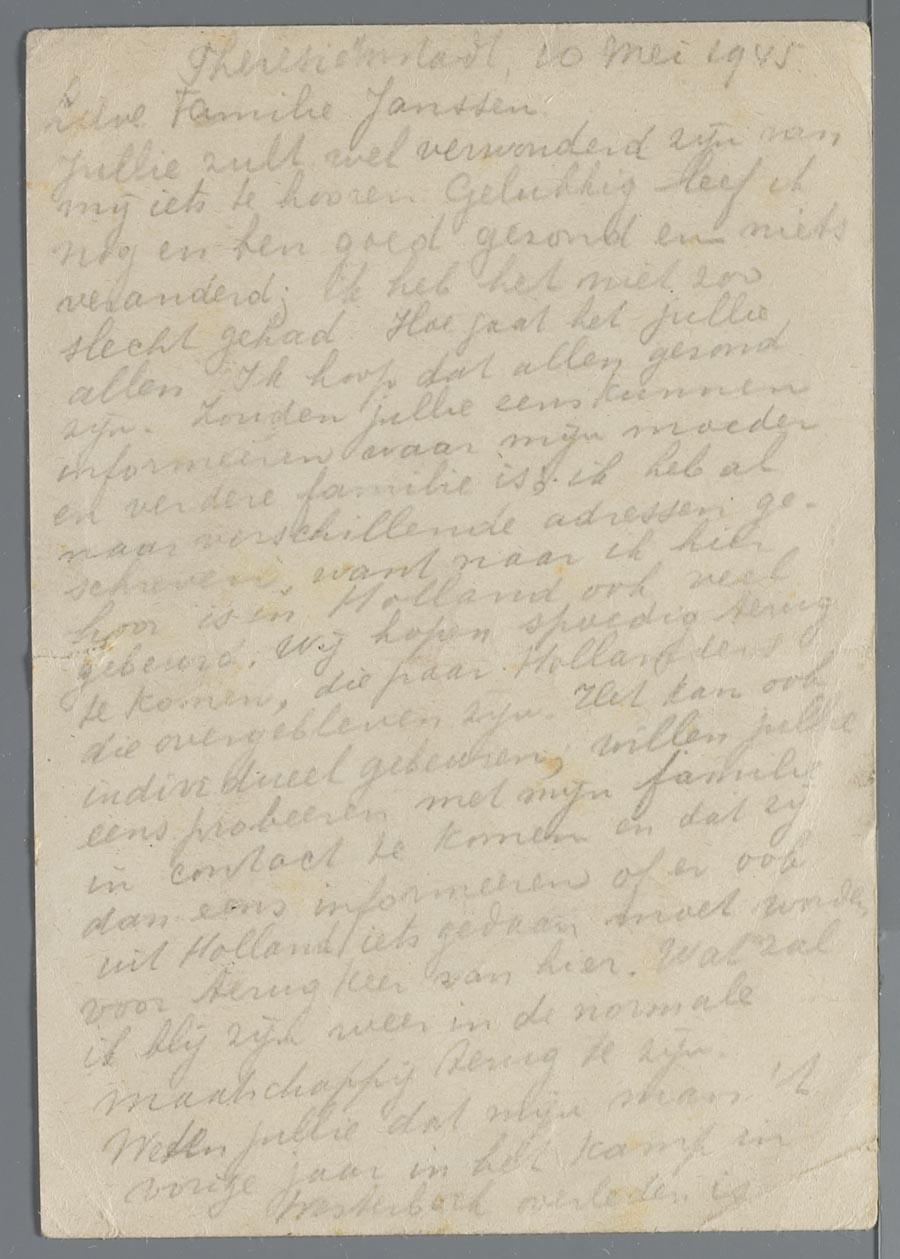 Theresiënstadt, 10 Mei 1945.
Lieve Familie Janssen.
Jullie zult wel verwonderd zijn van
mij iets te hooren. Gelukkig leef ik
nog en ben goed gezond en niets
veranderd; Ik heb het niet zoo
slecht gehad. Hoe gaat het jullie
allen. Ik hoop dat allen gezond
zijn. Zouden jullie eens kunnen
informeeren waar mijn moeder
en verdere familie is; ik heb al
naar verschillende adressen ge-
schreven, want naar ik hier
hoor is in Holland ook veel
gebeurd. Wij hopen spoedig terug
te komen, die paar Hollanders
die overgebleven zijn. Het kan ook
individueel gebeuren; willen jullie
eens probeeren met mijn familie
in contact te komen en dat zij
dan eens informeeren of er ook
uit Holland iets gedaan moet worden
voor terugkeer van hier. Wat zal
ik blij zijn weer in de normale
maatschappij terug te zijn.
Weten jullie dat mijn man 't
vorige jaar in het kamp in
Westerbork overleden is